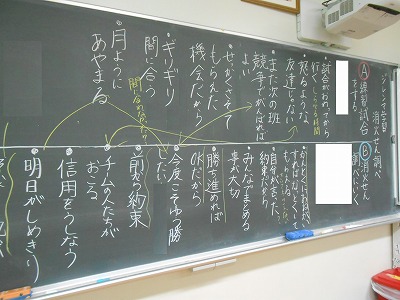 ジレンマ学習
消火せん調べ
Ⓐ練習試合
Ⓑ消火せん
調べにいく
・試合がおわってから
行く しらべる時間
・怒るような
友達じゃない
・また次の班
競争でがんばれば
よい
・せっかくさそって
もらえた
機会だから
・ギリギリ
間に合う
間に合わな
・月ように
あやまる
・自分が言った
約束だから
・みんなでまとめる
事が大切
・勝ち進めれば
OKだから
・今度こそゆう勝
したい
・前から約束
・チームの人たちが
おこる
・信用をうしなう
・明日がしめきり